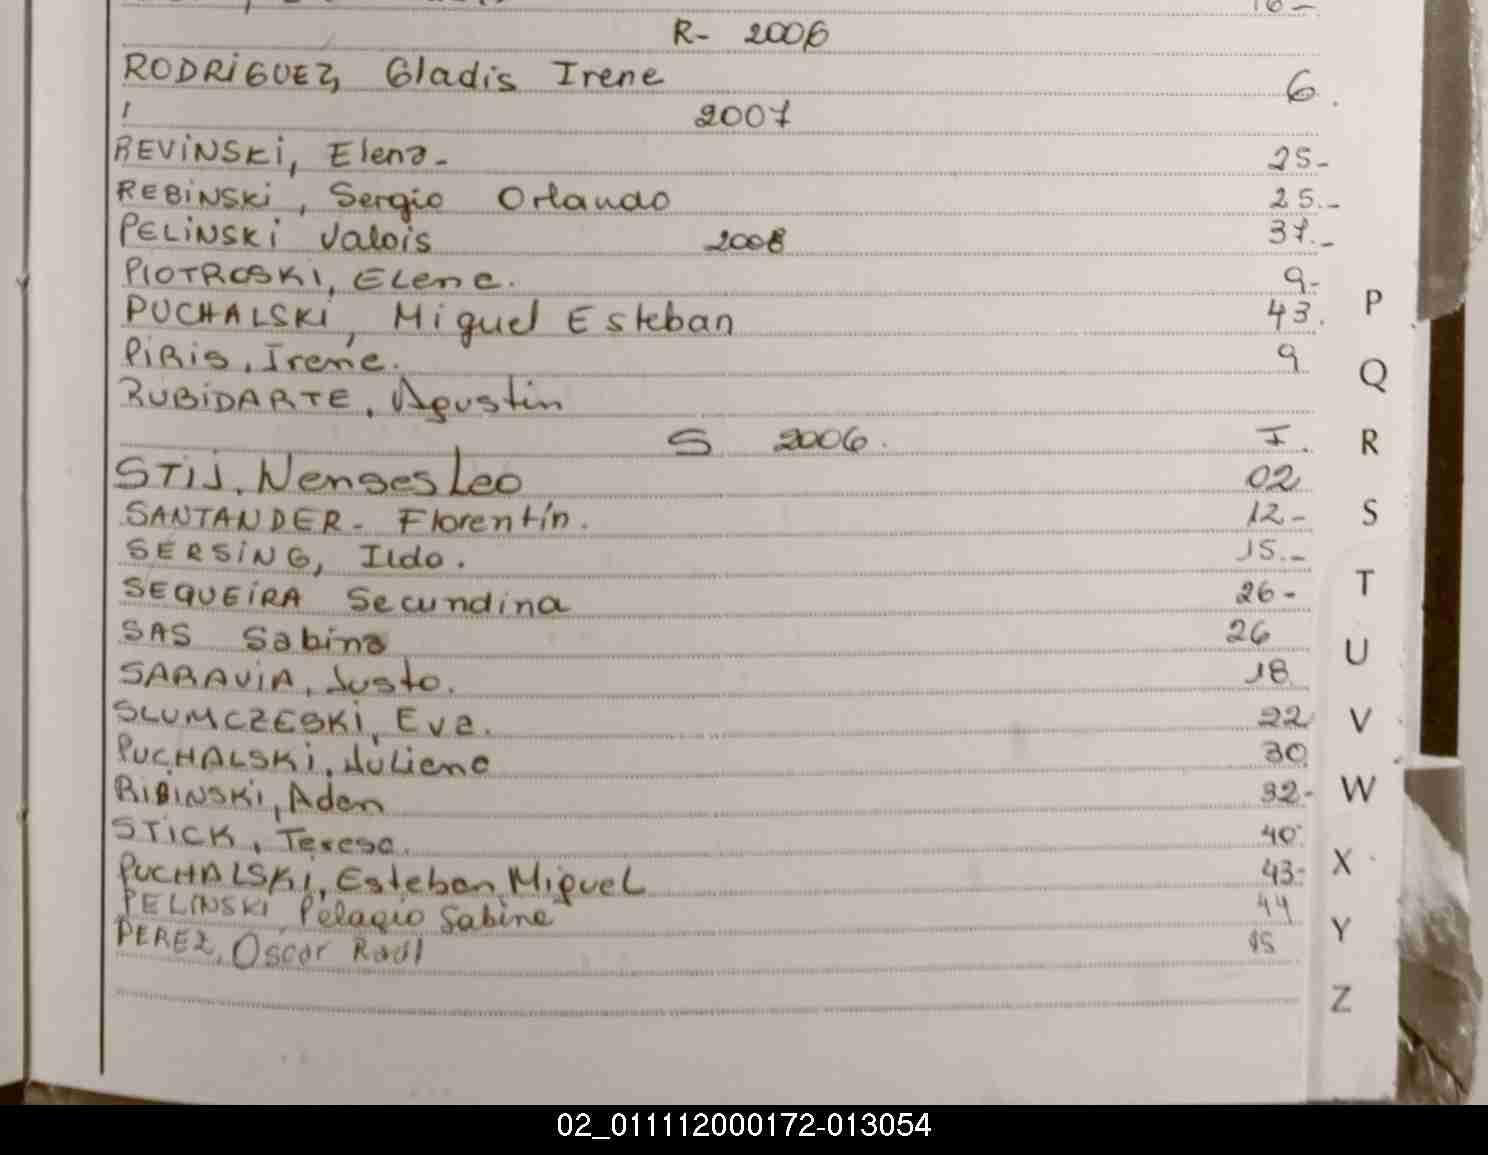 16-
R- 2006
RODRiGUEZ, Gladis Irene 6.
2007
REViNSKi, Elena- 25-
REBiNSKi, Sergio Orlando 25.-
PELiNSKi Valois 2008 37.-
PIOTROSKI, ELena. 9-
PUCHALSKi, Miguel Esteban 43.
PiRis, Irene. 9
RUBiDARTE, Agustin
S 2006. F.
STiJ. WensesLao 02
SANTANDER- Florentín. 12-
SERSiNG, Ildo. 15.-
SEQUEiRA Secundina 26-
SAS Sabina 26
SARAViA, Justo. 18
SLUMCZESKi, Eva. 22
PUCHALSKi, JuLiano 30
RIBINSKi, Adan 32-
STiCK, Teresa. 40
PUCHALSKi, Esteban MigueL 43-
PELINSKI Pelagio Sabino 44
PEREZ, Oscar Raúl 15
P
Q
R
S
T
U
V
W
X
Y
Z
02_011112000172-013054